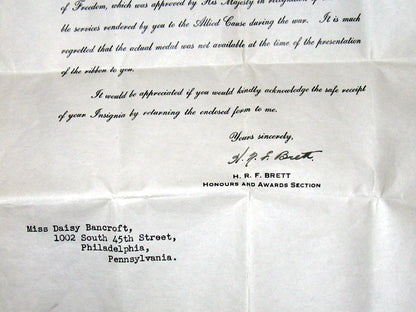 of Freedom, which was approved by His Majesty in recognition of
ble services rendered by you to the Allied Cause during the war. It is much
regretted that the actual medal was not available at the time of the presentation
of the ribbon to you.
It would be appreciated if you would kindly acknowledge the safe receipt
of your Insignia by returning the enclosed form to me.
Yours sincerely,
H. R. F. Brett.
H. R. F. BRETT
HONOURS AND AWARDS SECTION
Miss Daisy Bancroft,
1002 South 45th Street,
Philadelphia,
Pennsylvania.